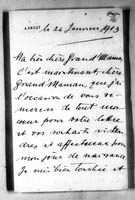 LANGUT le 24 Janvier 1913
Ma bien chère Grand'Maman
C'est maintenant, chère
Grand'Maman, que j'ai
l'occasion de vous re-
mercier de tout mon
cœur pour votre lettre
et vos souhaits si ten-
dres et affectueux pour
mon jour de naissance.
Je suis bien touchée et